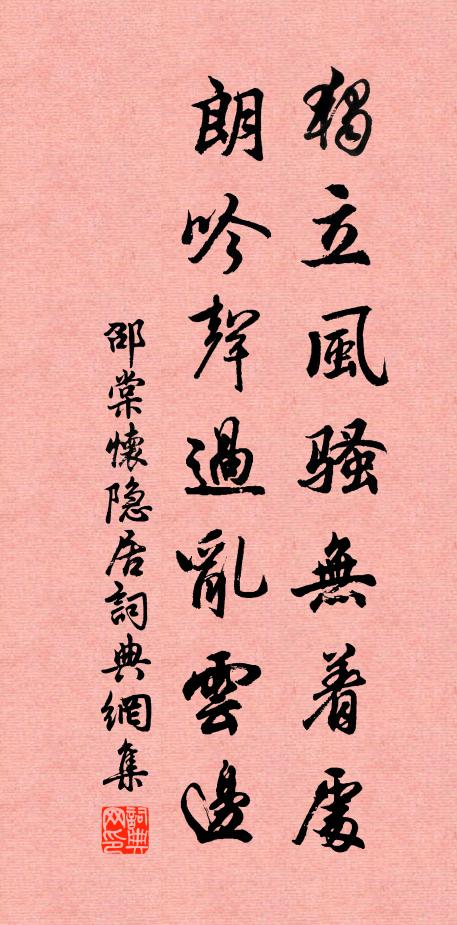 獨立風騷無着處
朗吟聲過亂雲邊
邵棠懷隐居詞典網集
詞典
网印